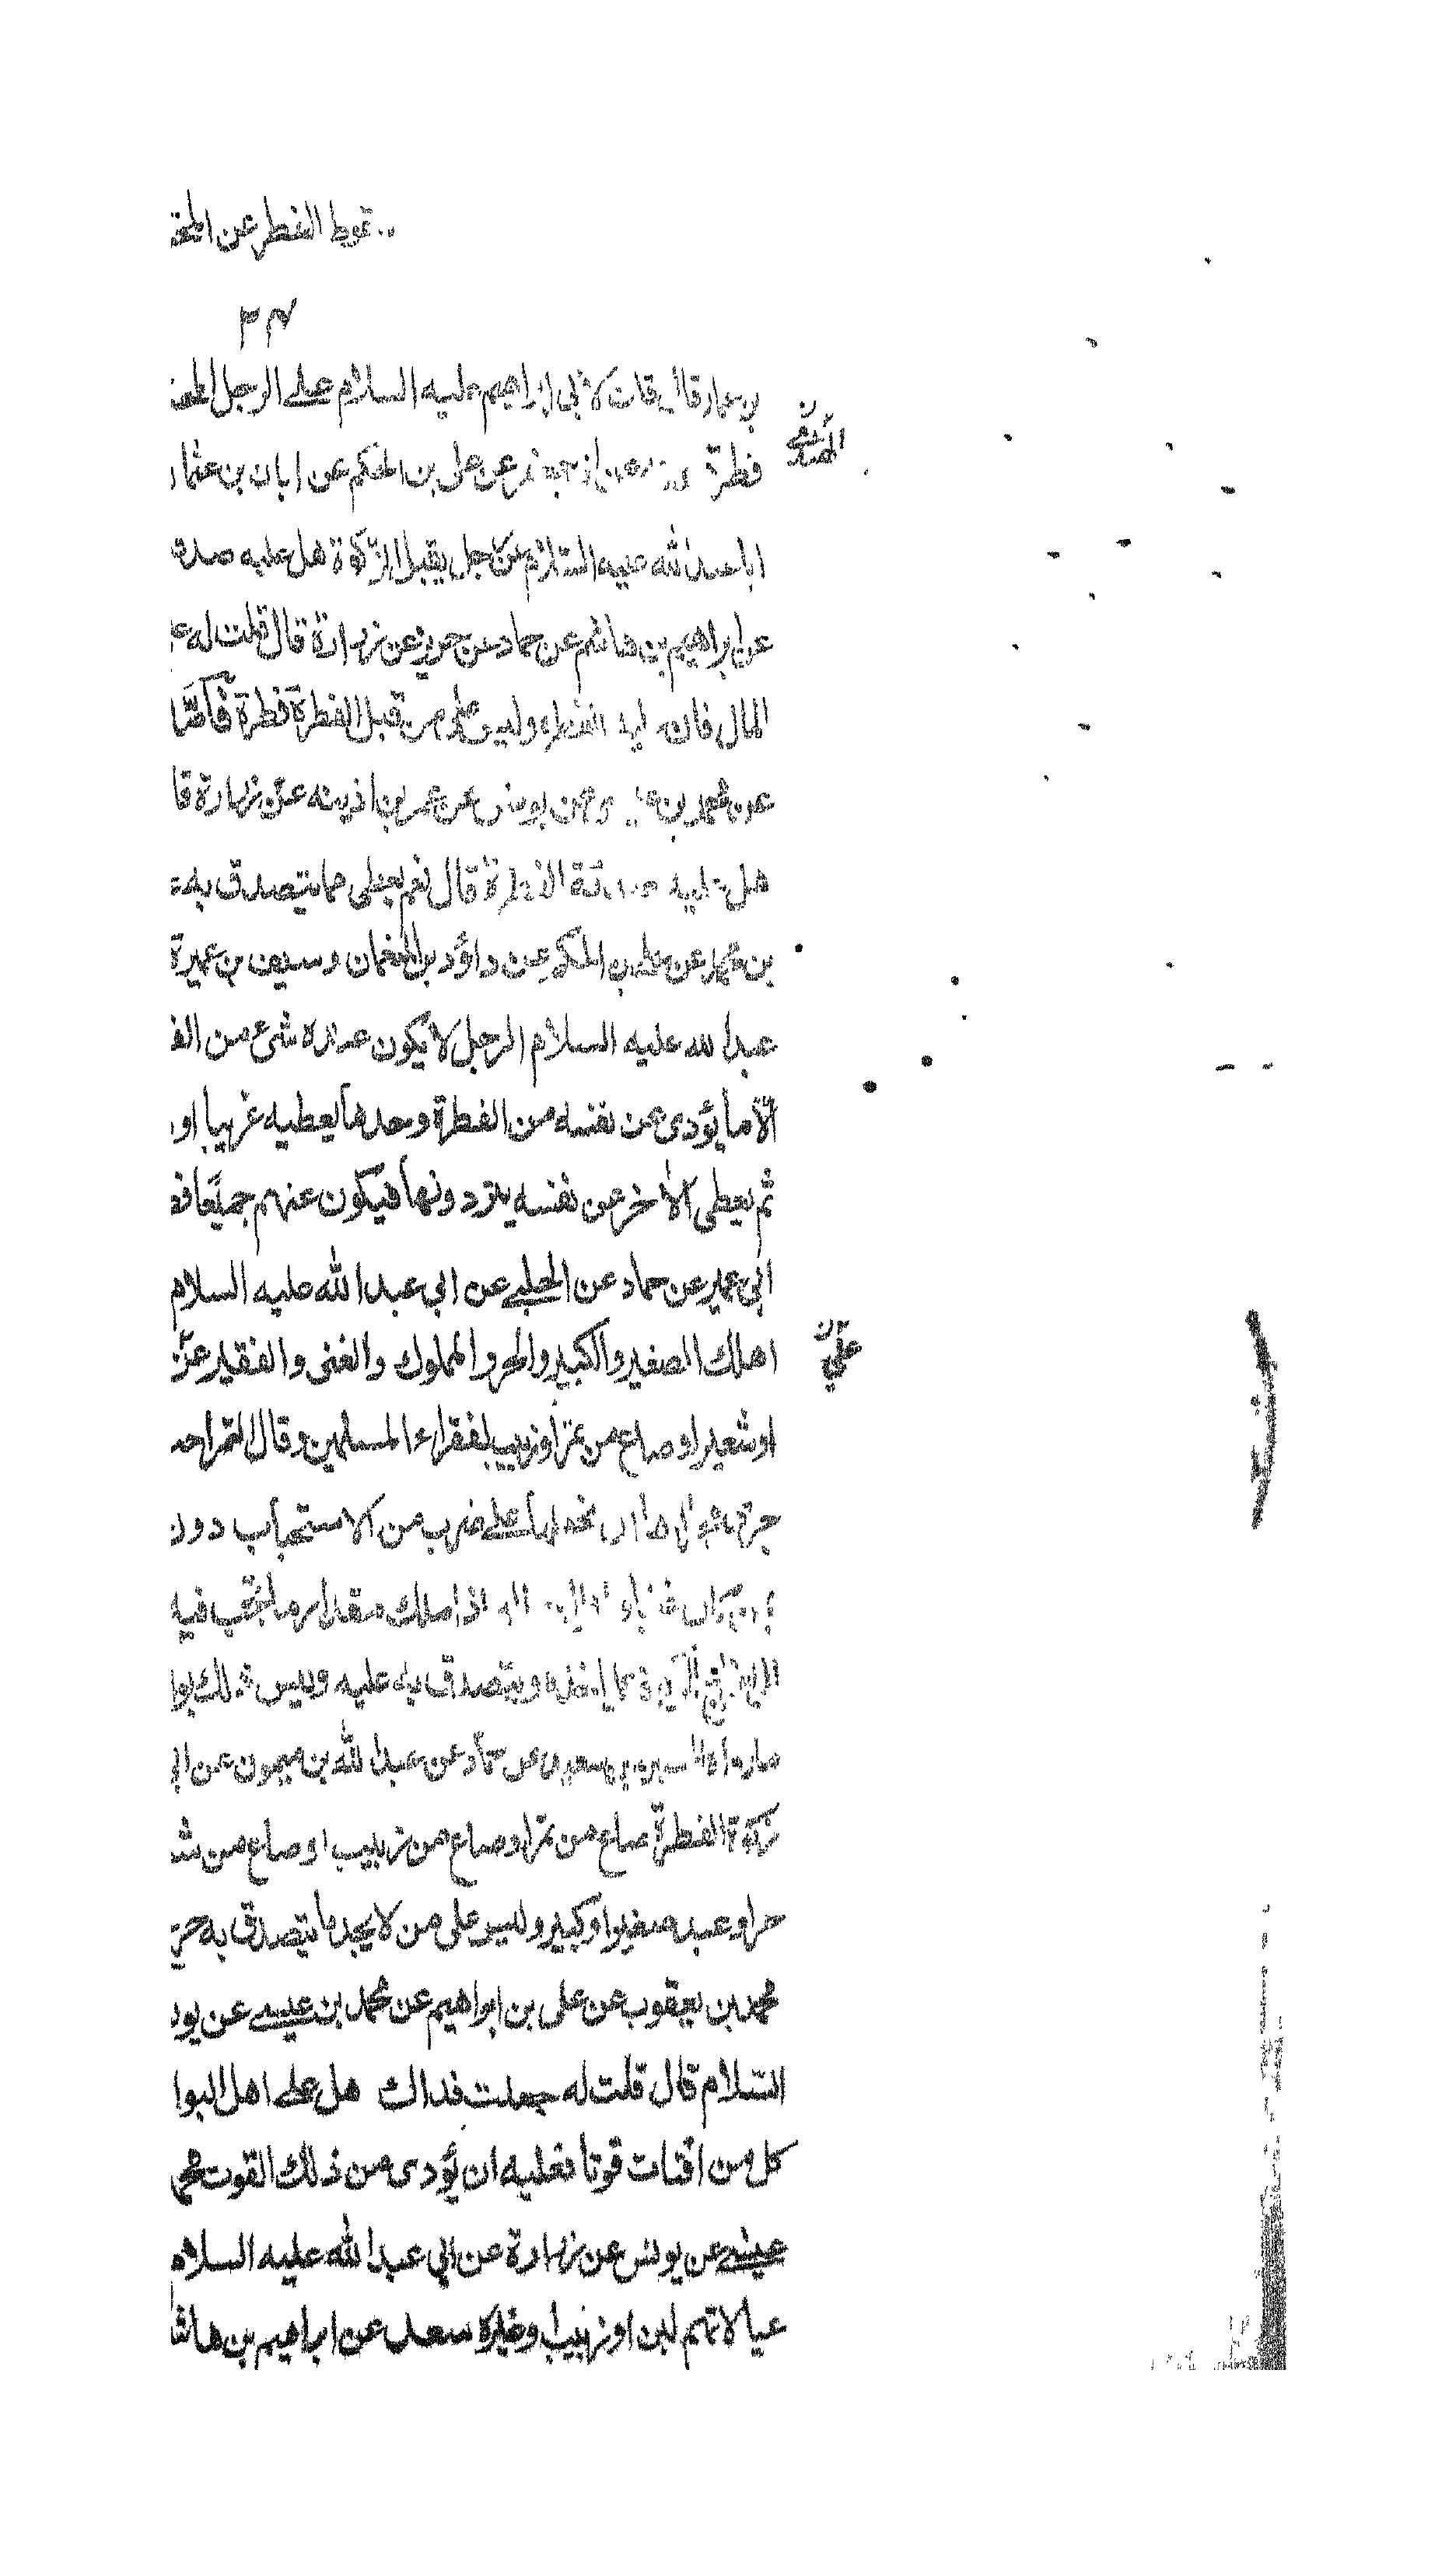 سقوط الفطر عن المحتا
٣٣
بن عمار قال قلت لابى ابراهيم عليه السلام على الرجل المحت
الصدقة ن
فطرة عن على بن الحكم عن ابان بن عثما
ابا عبد الله عليه السلام عن رجل يقبل الزكوة هل عليه صدق
عن ابراهيم بن هاشم عن حماد عن حريز عن زرارة قال قلت له
المال فان عليه الفطرة وليس على من قبل الفطرة فطرة فاما
عن محمد بن عن يونس عن عمر بن اذينه عن زرارة قا
هل عليه صدقة الفطرة قال نعم يعطى مما يتصدق به
بن محمد عن على بن الحكم عن داؤد بن النعمان وسيف بن عميرة
عبد الله عليه السلام الرجل لا يكون عنده شئ من الف
الا ما يؤدى عن نفسه من الفطرة وحدها يعطيه غريبا او
ثم يعطى الاخر عن نفسه يتردونها فيكون عنهم جميعا فط
ابى عمير عن حماد عن الحلبى عن ابى عبد الله عليه السلام
على ن
اهلك الصغير والكبير والحر والمملوك والغنى والفقير عن
او شعير او صاع من تمر او زبيب لفقراء المسلمين وقال التمر احد
جرى هذا نحملها على ضرب من الاستحباب دون
اذا ملك مقدار ما تجب فيه
مما ياخذه ويتصدق به عليه وليس ذلك بوا
ما رواه سعد عن حماد عن عبد الله بن ميمون عن ابى
زكوة الفطرة صاع من تمر او صاع من زبيب او صاع من شع
حر او عبد صغير او كبير وليس على من لا يجد ما يتصدق به حر
محمد بن يعقوب عن على بن ابراهيم عن محمد بن عيسى عن يو
السلام قال قلت له جعلت فداك هل على اهل البوا
كل من اقتات قوتا فعليه ان يؤدى من ذلك القوت محم
عيسى عن يونس عن زرارة عن ابى عبد الله عليه السلام
عيالاتهم لبن او زبيب او غيره سعد عن ابراهيم بن هاش